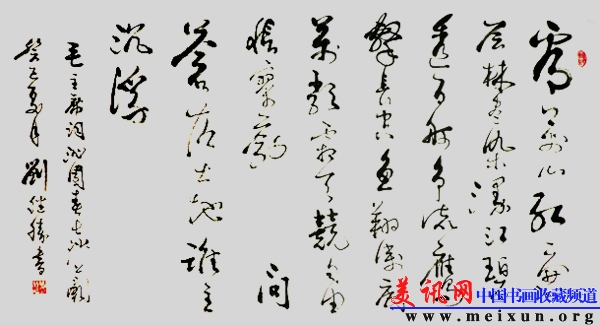 看萬山红遍
层林尽染漫江碧
透百舸争流鹰
擊长空鱼翔浅底
萬類霜天競自由
怅寥廓 問
蒼茫大地誰主
沉浮
毛主席词沁園春長沙
癸巳夏月 劉继勝書
美讯网 中国书画收藏频道
www.meixun.org